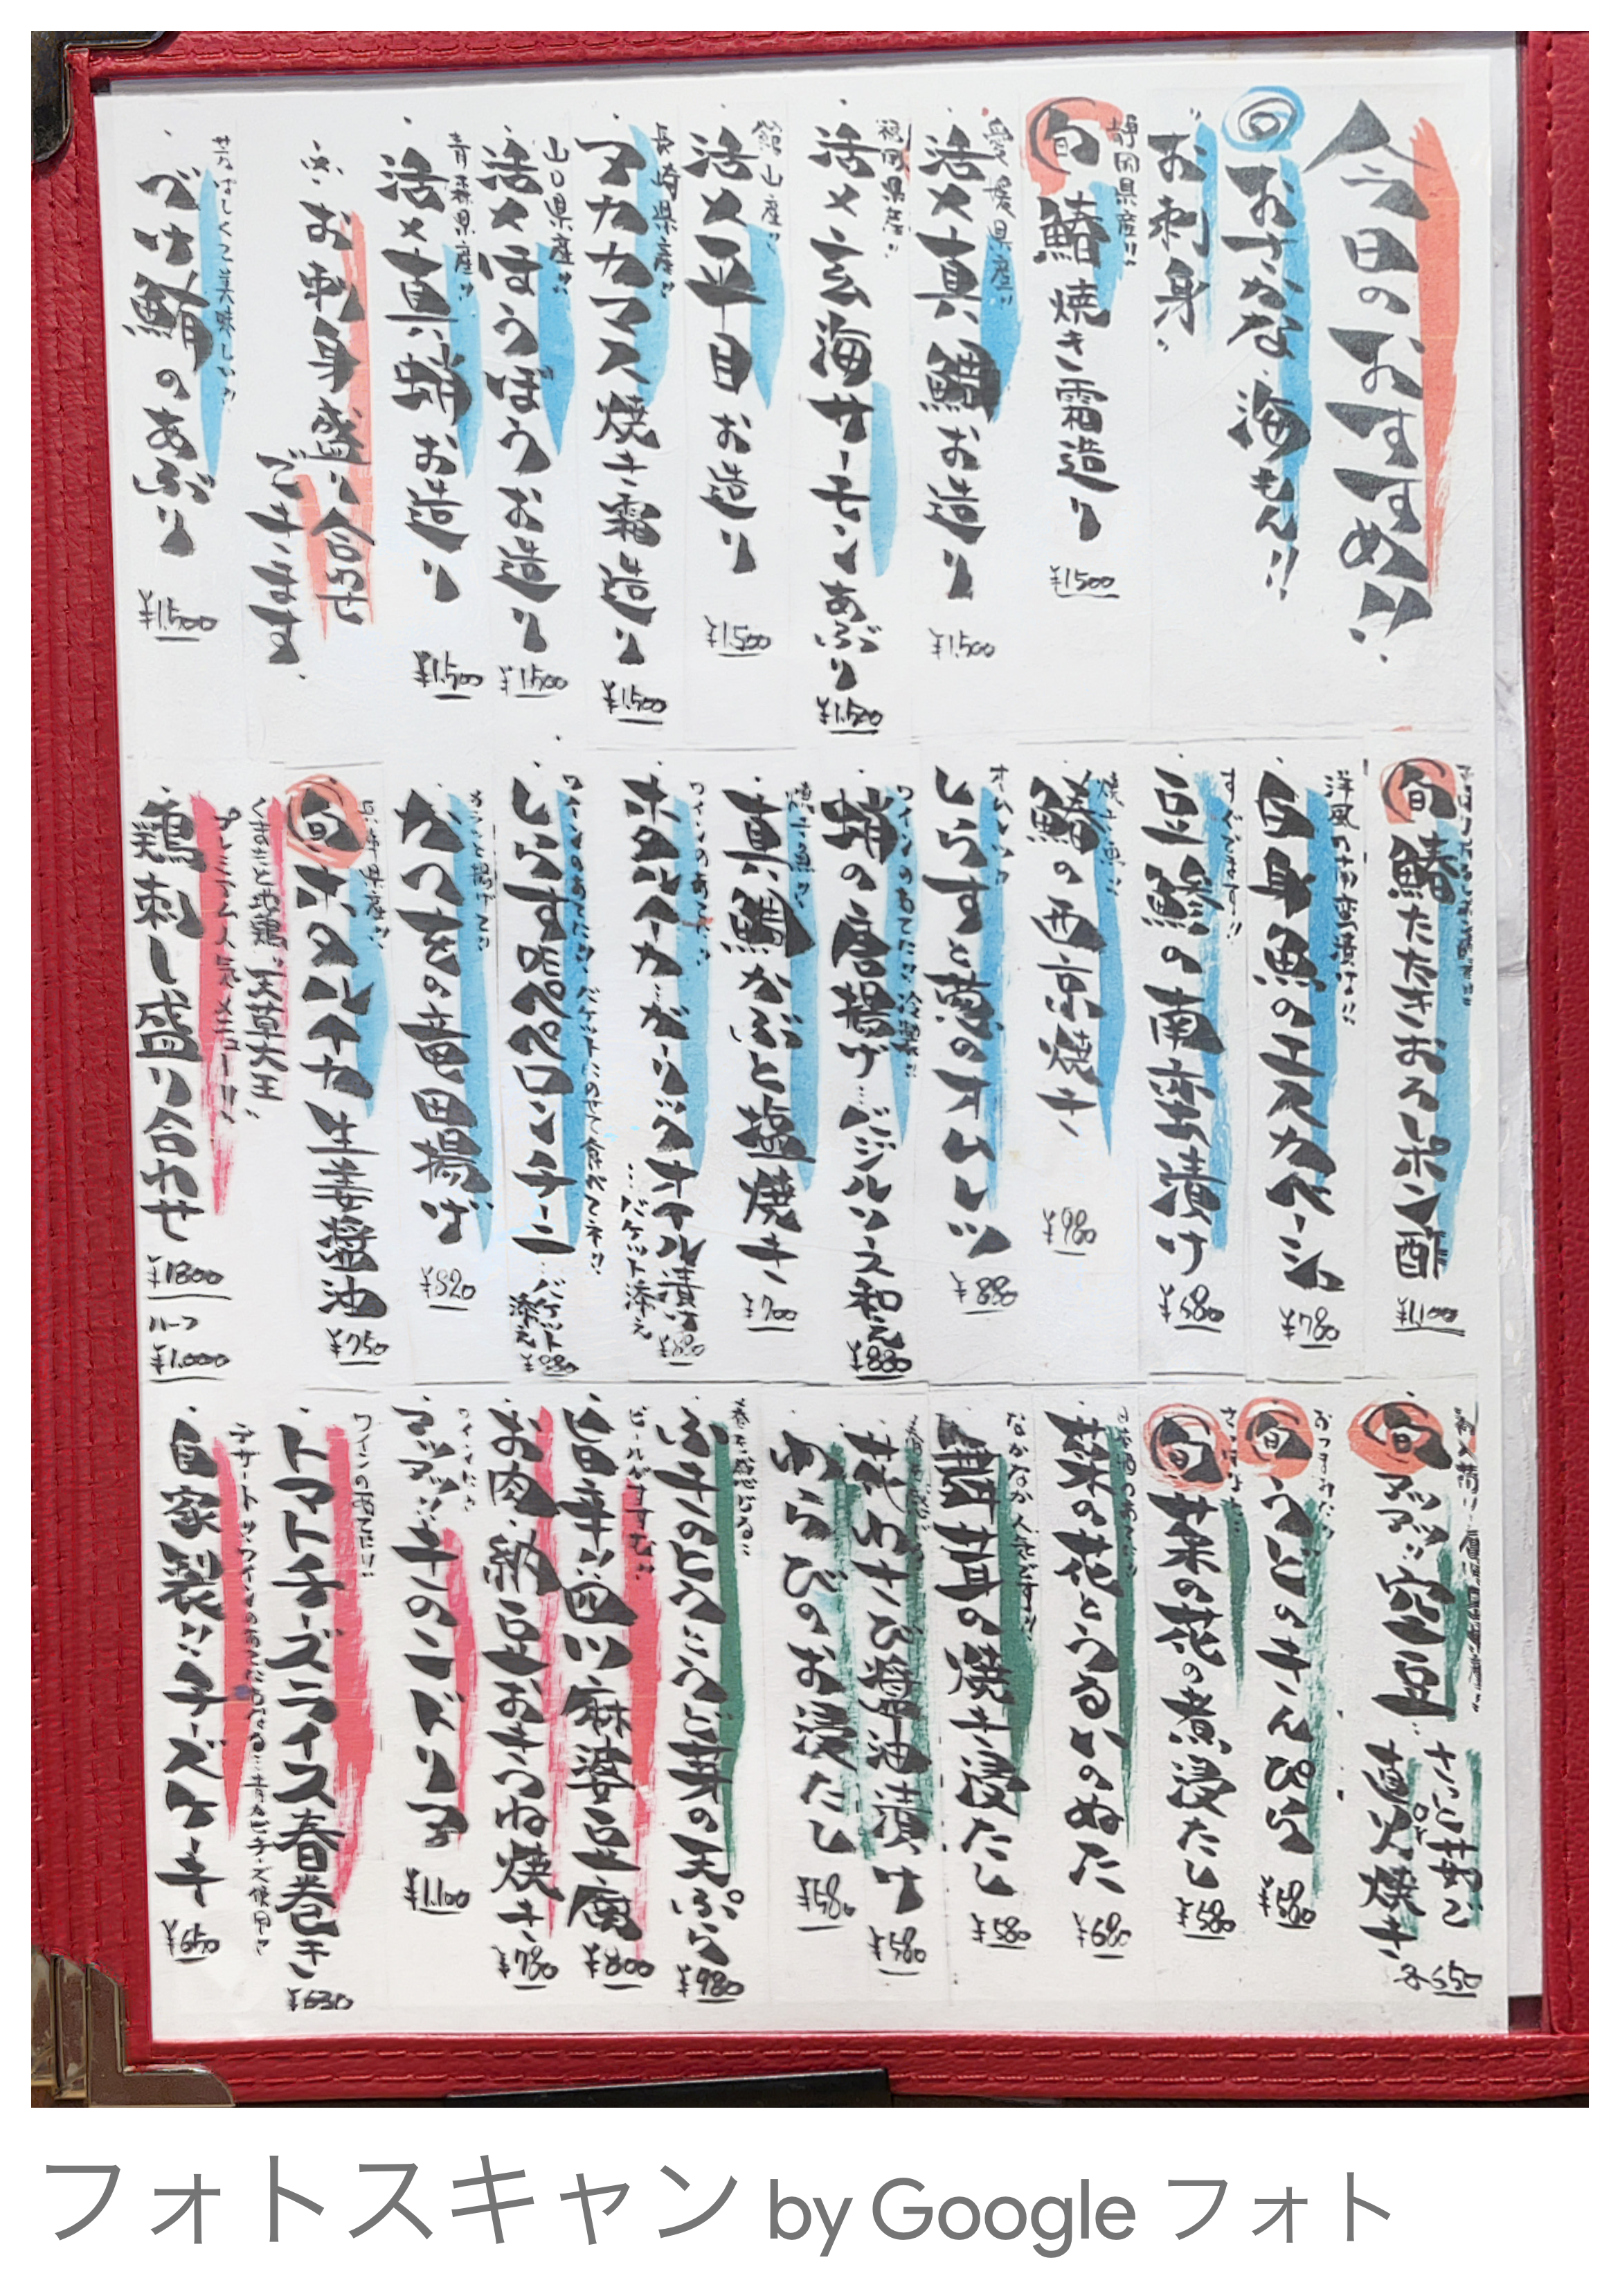 今日のおすすめ!!
旬 おさかな 海もん!!
お刺身
静岡県産!!
旬 鰆焼き霜造り
¥1,500
愛媛県産!!
活〆真鯛お造り
¥1,500
福岡県産!!
活〆玄海サーモンあぶり
¥1,500
館山産!!
活〆平目お造り
¥1,500
長崎県産!!
アカカマス焼き霜造り
¥1,500
山口県産!!
活〆ほうぼうお造り
¥1,500
青森県産!!
活〆真蛸お造り
¥1,500
お刺身盛り合わせ
できます
べけ鮪のあぶり
¥1,500
旬 鰆たたきおろしポン酢
¥1,100
白身魚のエスカベーシュ
¥780
すぐでます!!
豆鯵の南蛮漬け
¥580
焼き魚!!
鰆の西京焼き
¥980
オムレツ!!
しらすと葱のオムレツ
¥880
ワインのあてに!!冷製!!
蛸の唐揚げ…バジルソース和え
¥880
焼き魚!!
真鯛かぶと塩焼き
¥700
ワインのあてに!!
ホタルイカ ガーリックオイル漬け
…バケット添え
¥880
ワインのあてに!!バケットにのせて食べてネ!!
しらすペペロンチーニ
…バケット添え
¥980
カラッと揚げて!!
かつをの竜田揚げ
¥820
兵庫県産!!
旬 ホタルイカ生姜醤油
¥750
くまもと地鶏"天草大王"
プレミアム人気メニュー!!
鶏刺し盛り合わせ
¥1800
ハーフ
¥1,000
旬 アツアツ!!空豆…さっと茹で
or
直火焼き
¥550
おつまみに!!
旬 うどのきんぴら
¥580
旬 菜の花の煮浸たし
¥580
日本酒のあてに!!
菜の花とつるいかのぬた
¥680
なかなか人気です!!
舞茸の焼き浸たし
¥580
花わさび醤油漬け
¥580
わらびのお浸たし
¥580
ふきのとうとうど芽の天ぷら
¥980
ビールがすすむ!!
旨辛!!四川麻婆豆腐
¥800
お肉・納豆おきつね焼き
¥780
ワインに!!
アツアツ!!牛のニドリア
¥1,100
ワインのあてに!!
トマトチーズライス春巻き
¥630
デザート!!ワインのあてにもなる…青カビチーズ使用!!
自家製!!チーズケーキ
¥650
フォトスキャン by Google フォト